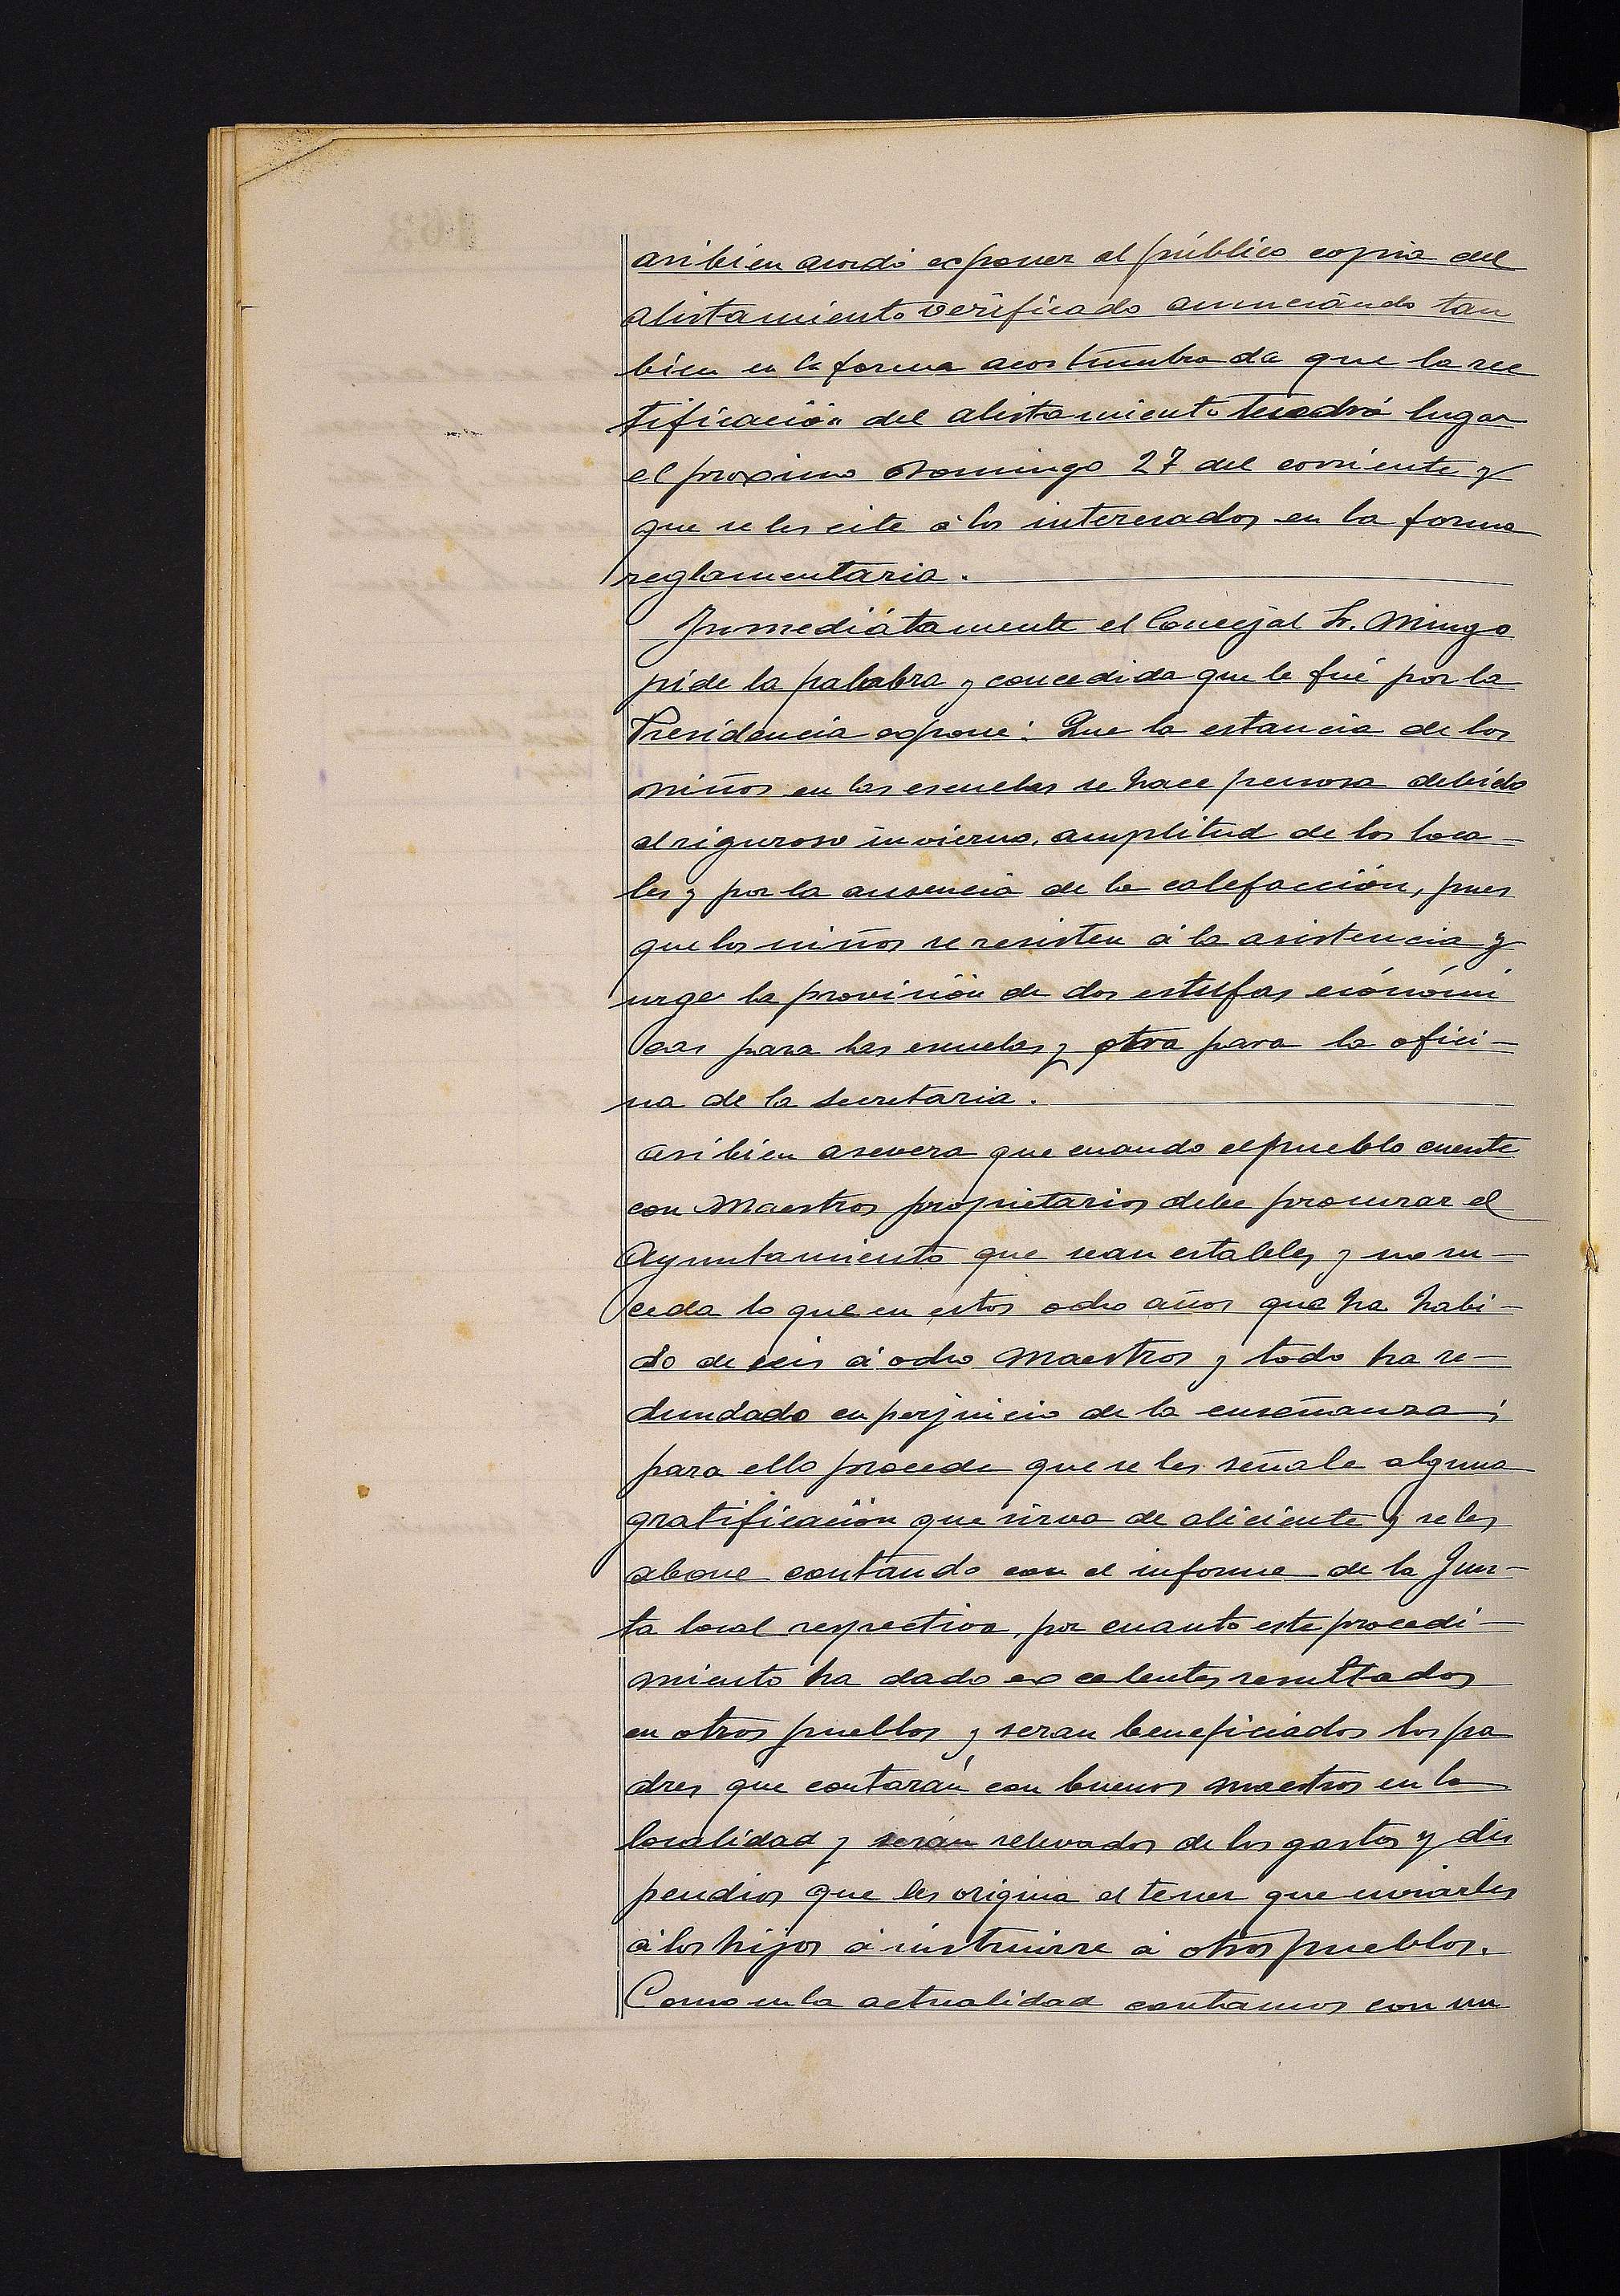 asi bien acordó exponer al público copia del
alistamiento verificado anunciando tan
bien en la forma acostumbrada que la rec
tificación del alistamiento tendrá lugar
el proximo Domingo 27 del corriente y
que se les cite á los interesados en la forma
reglamentaria.
Inmediatamente el Concejal Sr. Mingo
pide la palabra y concedida que le fué por la
Presidencia expone: Que la estancia de los
niños en las escuelas se hace penosa debido
al riguroso invierno, amplitud de los loca-
les y por la ausencia de la calefacción, pues
que los niños se resisten á la asistencia y
urge la provisión de dos estufas económi
cas para las escuelas y otra para la ofici-
na de la secretaria.
Asi bien asevera que cuando el pueblo cuente
con Maestros propietarios debe procurar el
Ayuntamiento que sean estables y no su-
ceda lo que en estos ocho años que ha habi-
do de seis á ocho Maestros y todo ha re-
dundado en perjuicio de la enseñanza;
para ello procede que se les señale alguna
gratificación que sirva de aliciente y se les
abone contando con el informe de la Jun-
ta local respectiva, por cuanto este procedi-
miento ha dado excelentes resultados
en otros pueblos y seran beneficiados los pa
dres que contarán con buenos maestros en la
localidad y serán relevados de los gastos y dis
pendios que les origina el tener que enviarles
á los hijos á instruirse á otros pueblos.
Como en la actualidad contamos con un